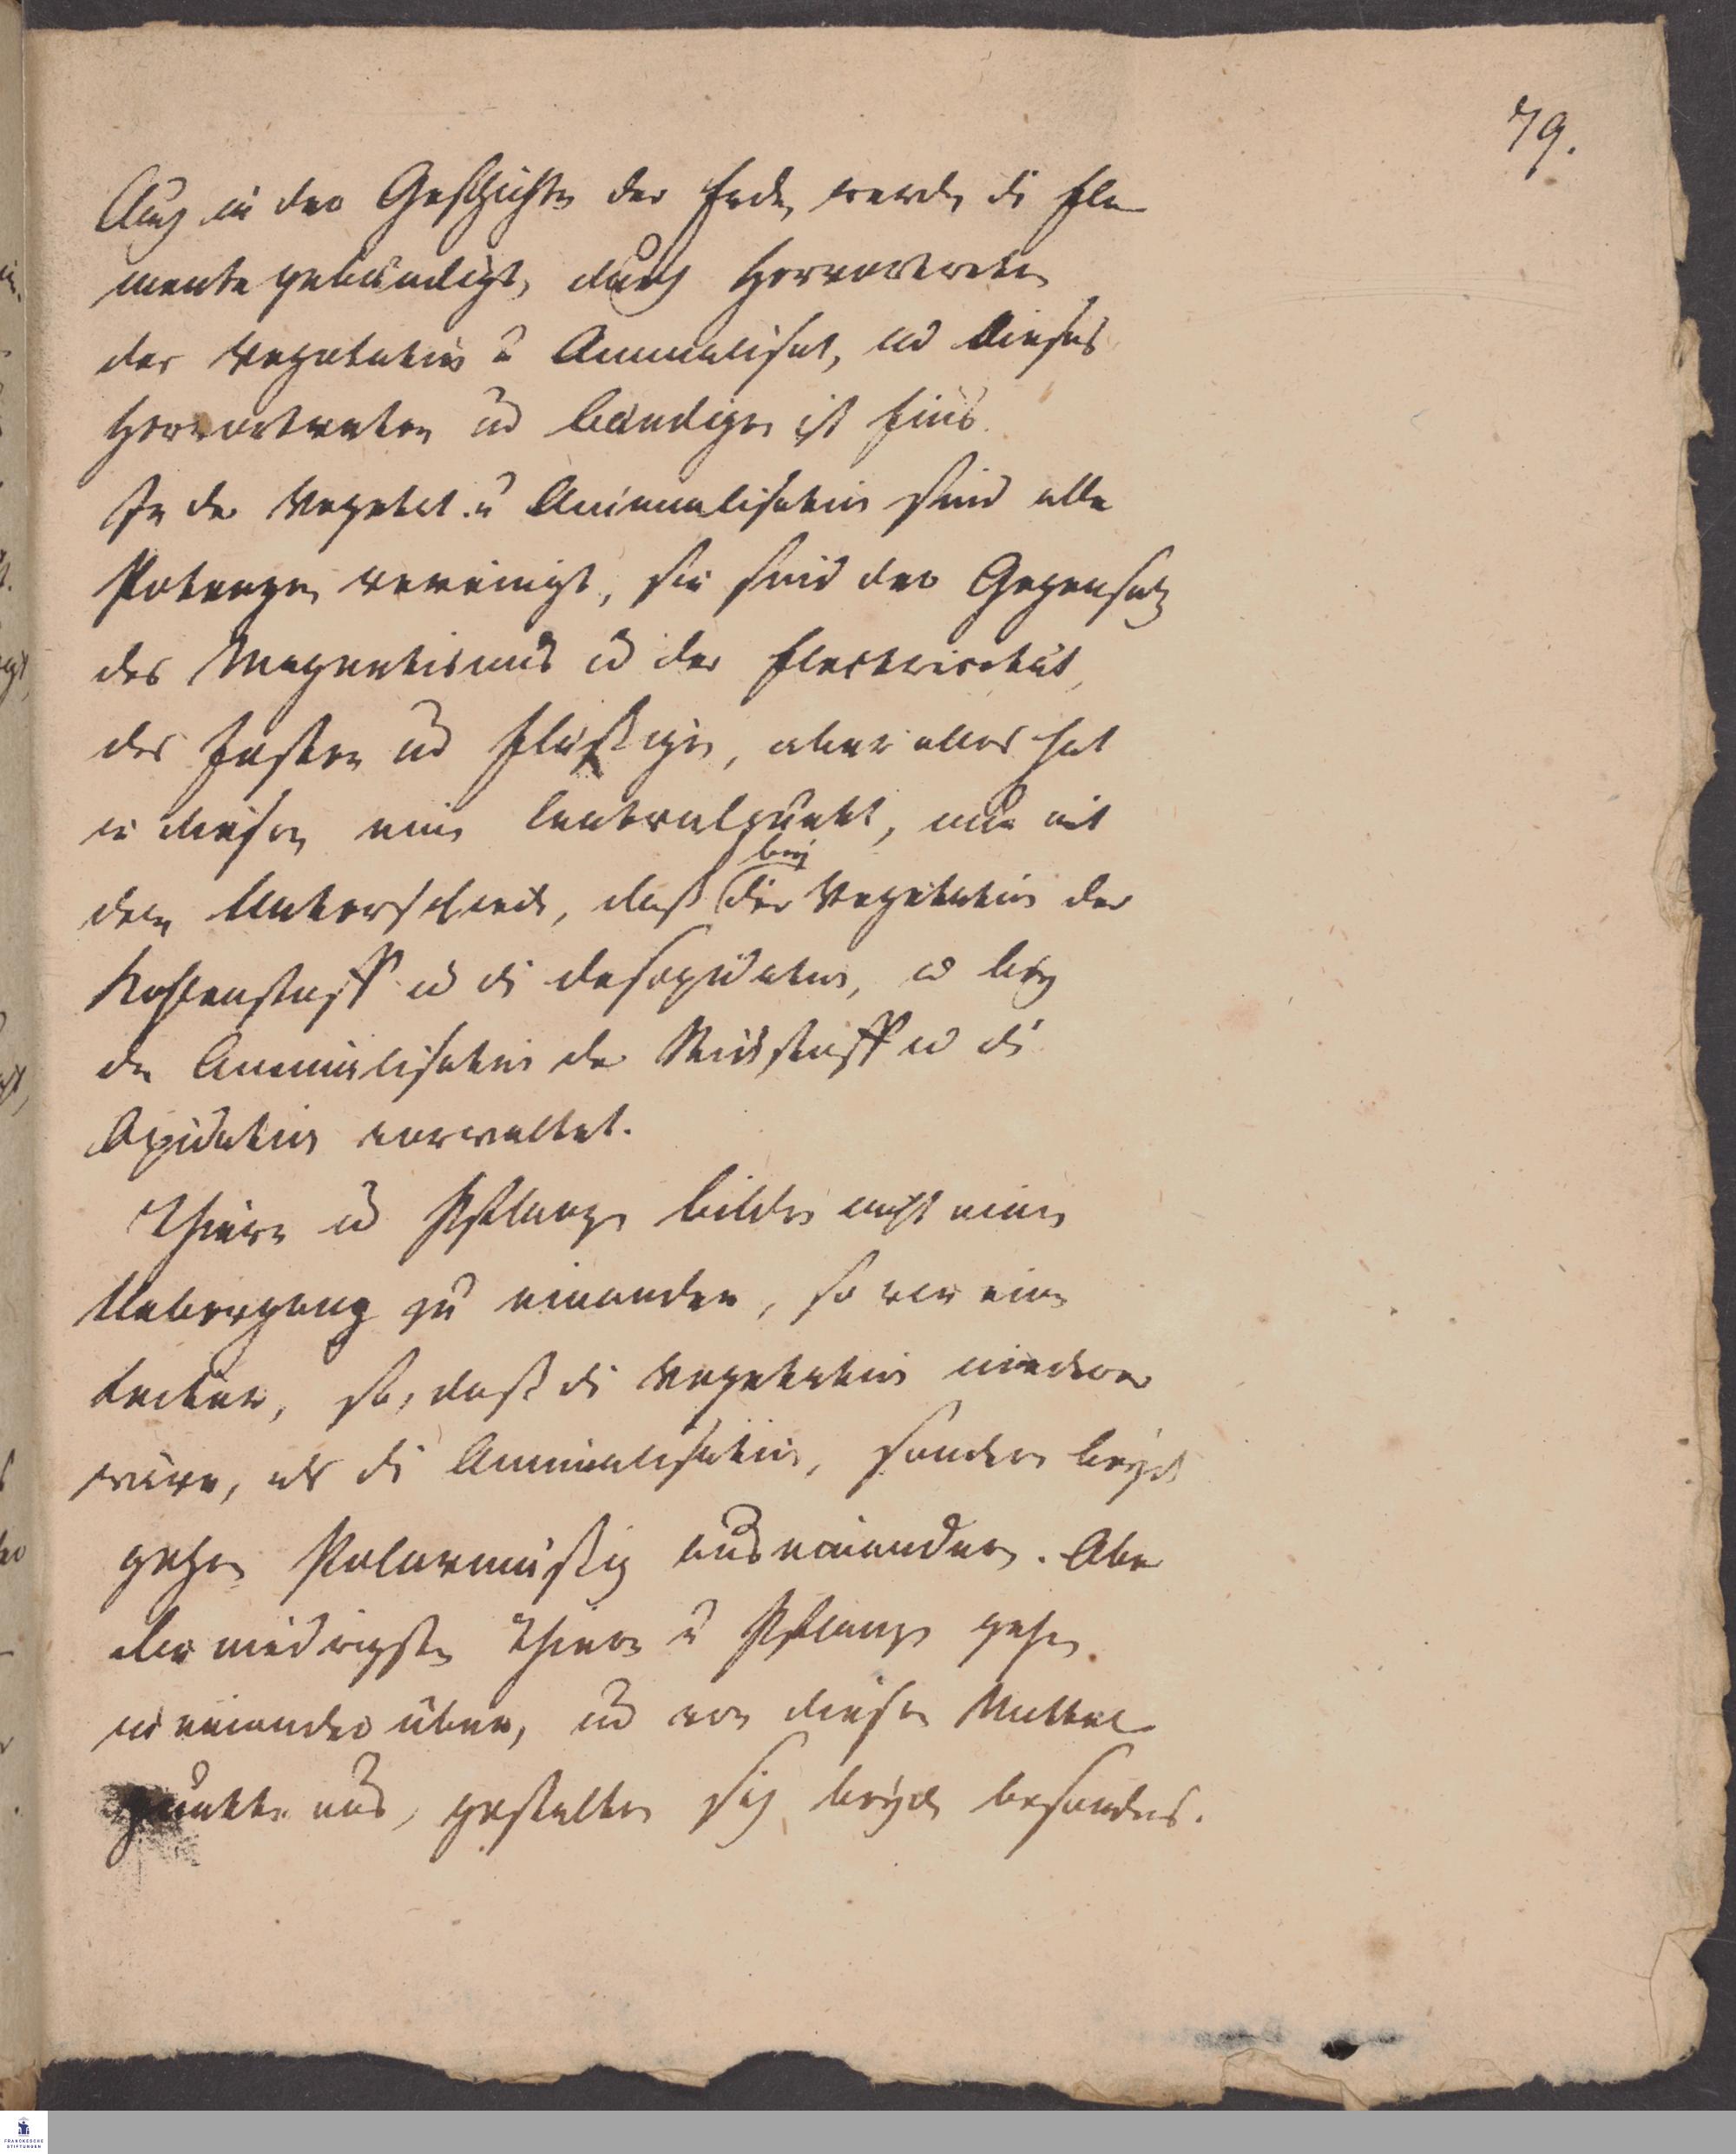 79.
Auch in der Geschichte der Erde, werden die Ele-
mente gebändigt, durch Hervortreten
der Vegetation u Animalisat, und dieses
Hervortreten und bändigen ist Eins.
In der Vegetat. u Animalisation sind alle
Potenzen vereinigt, sie sind der Gegensatz
des Magnetismus und der Electricität,
des Festen und Flüßigen, aber alles hat
in diesen einen Centralpunkt, nur mit
dem Unterschiede, daß bey der Vegetation der
Kohlenstoff und die desoxidation, und bey
der Animalisation der Stickstoff und die
Oxidation vorwaltet.
Thiere und Pflanzen bilden nicht einen
Uebergang zu einander, so wie eine
Leiter, so, daß die Vegetation niedrer
wäre, als die Animalisation, sondern beyde
gehen Polarmäßig auseinander. Aber
die niedrigsten Thiere u Pflanzen gehen
in einander über, und von diesen Mittel-
punkte aus, gestalten sich beyde besonders.
FRANCKESCHE
STIFTUNGEN